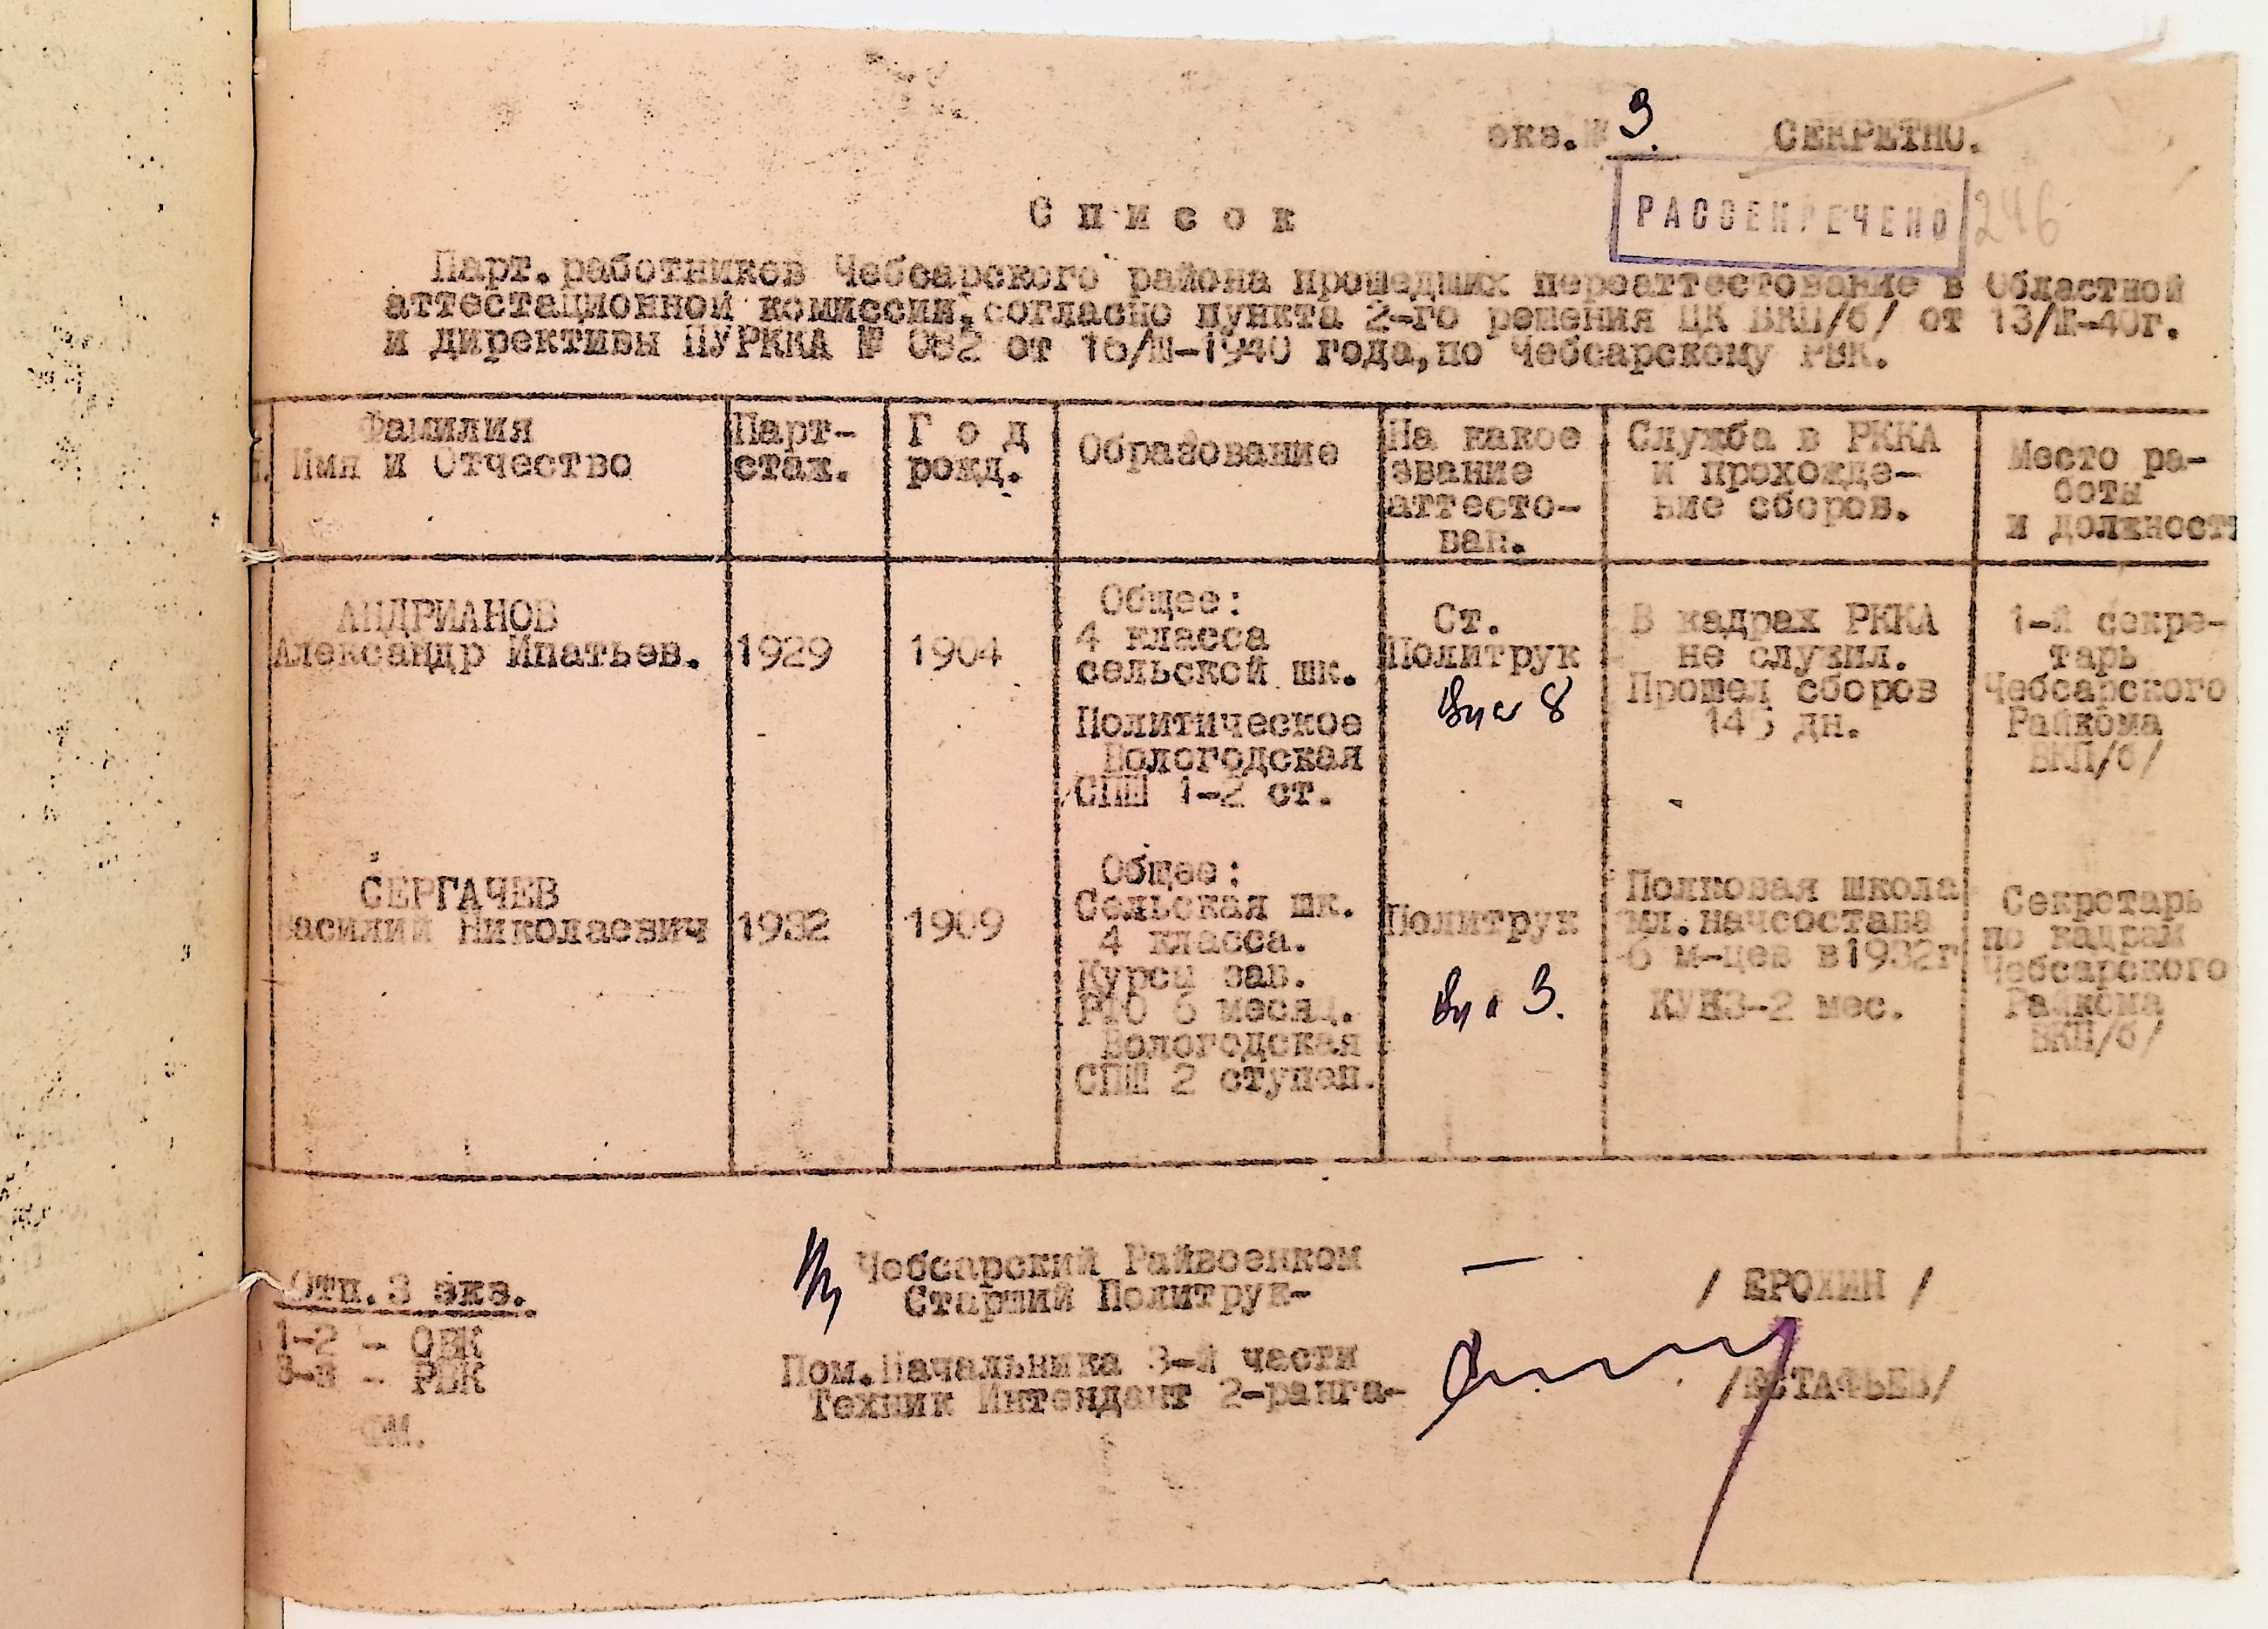 экз.№ 3. СЕКРЕТНО.
РАССЕКРЕЧЕНО
246
С п и с о к
Парт.работников Чебсарского района прошедших переаттестование в Областной
аттестационной комиссии, согласно пункта 2-го решения ЦК ВКП/б/ от 13/Ш-40г.
и директивы ПУРККА № 082 от 16/Ш-1940 года,по Чебсарскому РВК.
Фамилия
Имя и Отчество
Парт-
стаж.
Г о д
рожд.
Образование
На какое
звание
аттесто-
ван.
Служба в РККА
и прохожде-
ние сборов.
Место ра-
боты
и должность
АНДРИАНОВ
Александр Ипатьев.
1929
1904
Общее:
4 класса
сельской шк.
Политическое
Вологодская
СПШ 1-2 ст.
Ст.
Политрук
8
В кадрах РККА
не служил.
Прошел сборов
145 дн.
1-й секре-
тарь
Чебсарского
Райкома
ВКП/б/
СЕРГАЧЕВ
Василий Николаевич
1932
1909
Общее:
Сельская шк.
4 класса.
Курсы зав.
РПО 6 месяц.
Вологодская
СПШ 2 ступен.
Политрук
3.
Полковая школа
мл.начсостава
6 м-цев в1932г
КУНЗ-2 мес.
Секретарь
по кадрам
Чебсарского
Райкома
ВКП/б/
Отп.3 экз.
1-2 - ОВК
3-й - РВК
ФМ.
Чебсарский Райвоенком
Старший Политрук-
/ ЕРОХИН /
Пом.Начальника 3-й части
Техник Интендант 2-ранга-
/ЕСТАФЬЕВ/